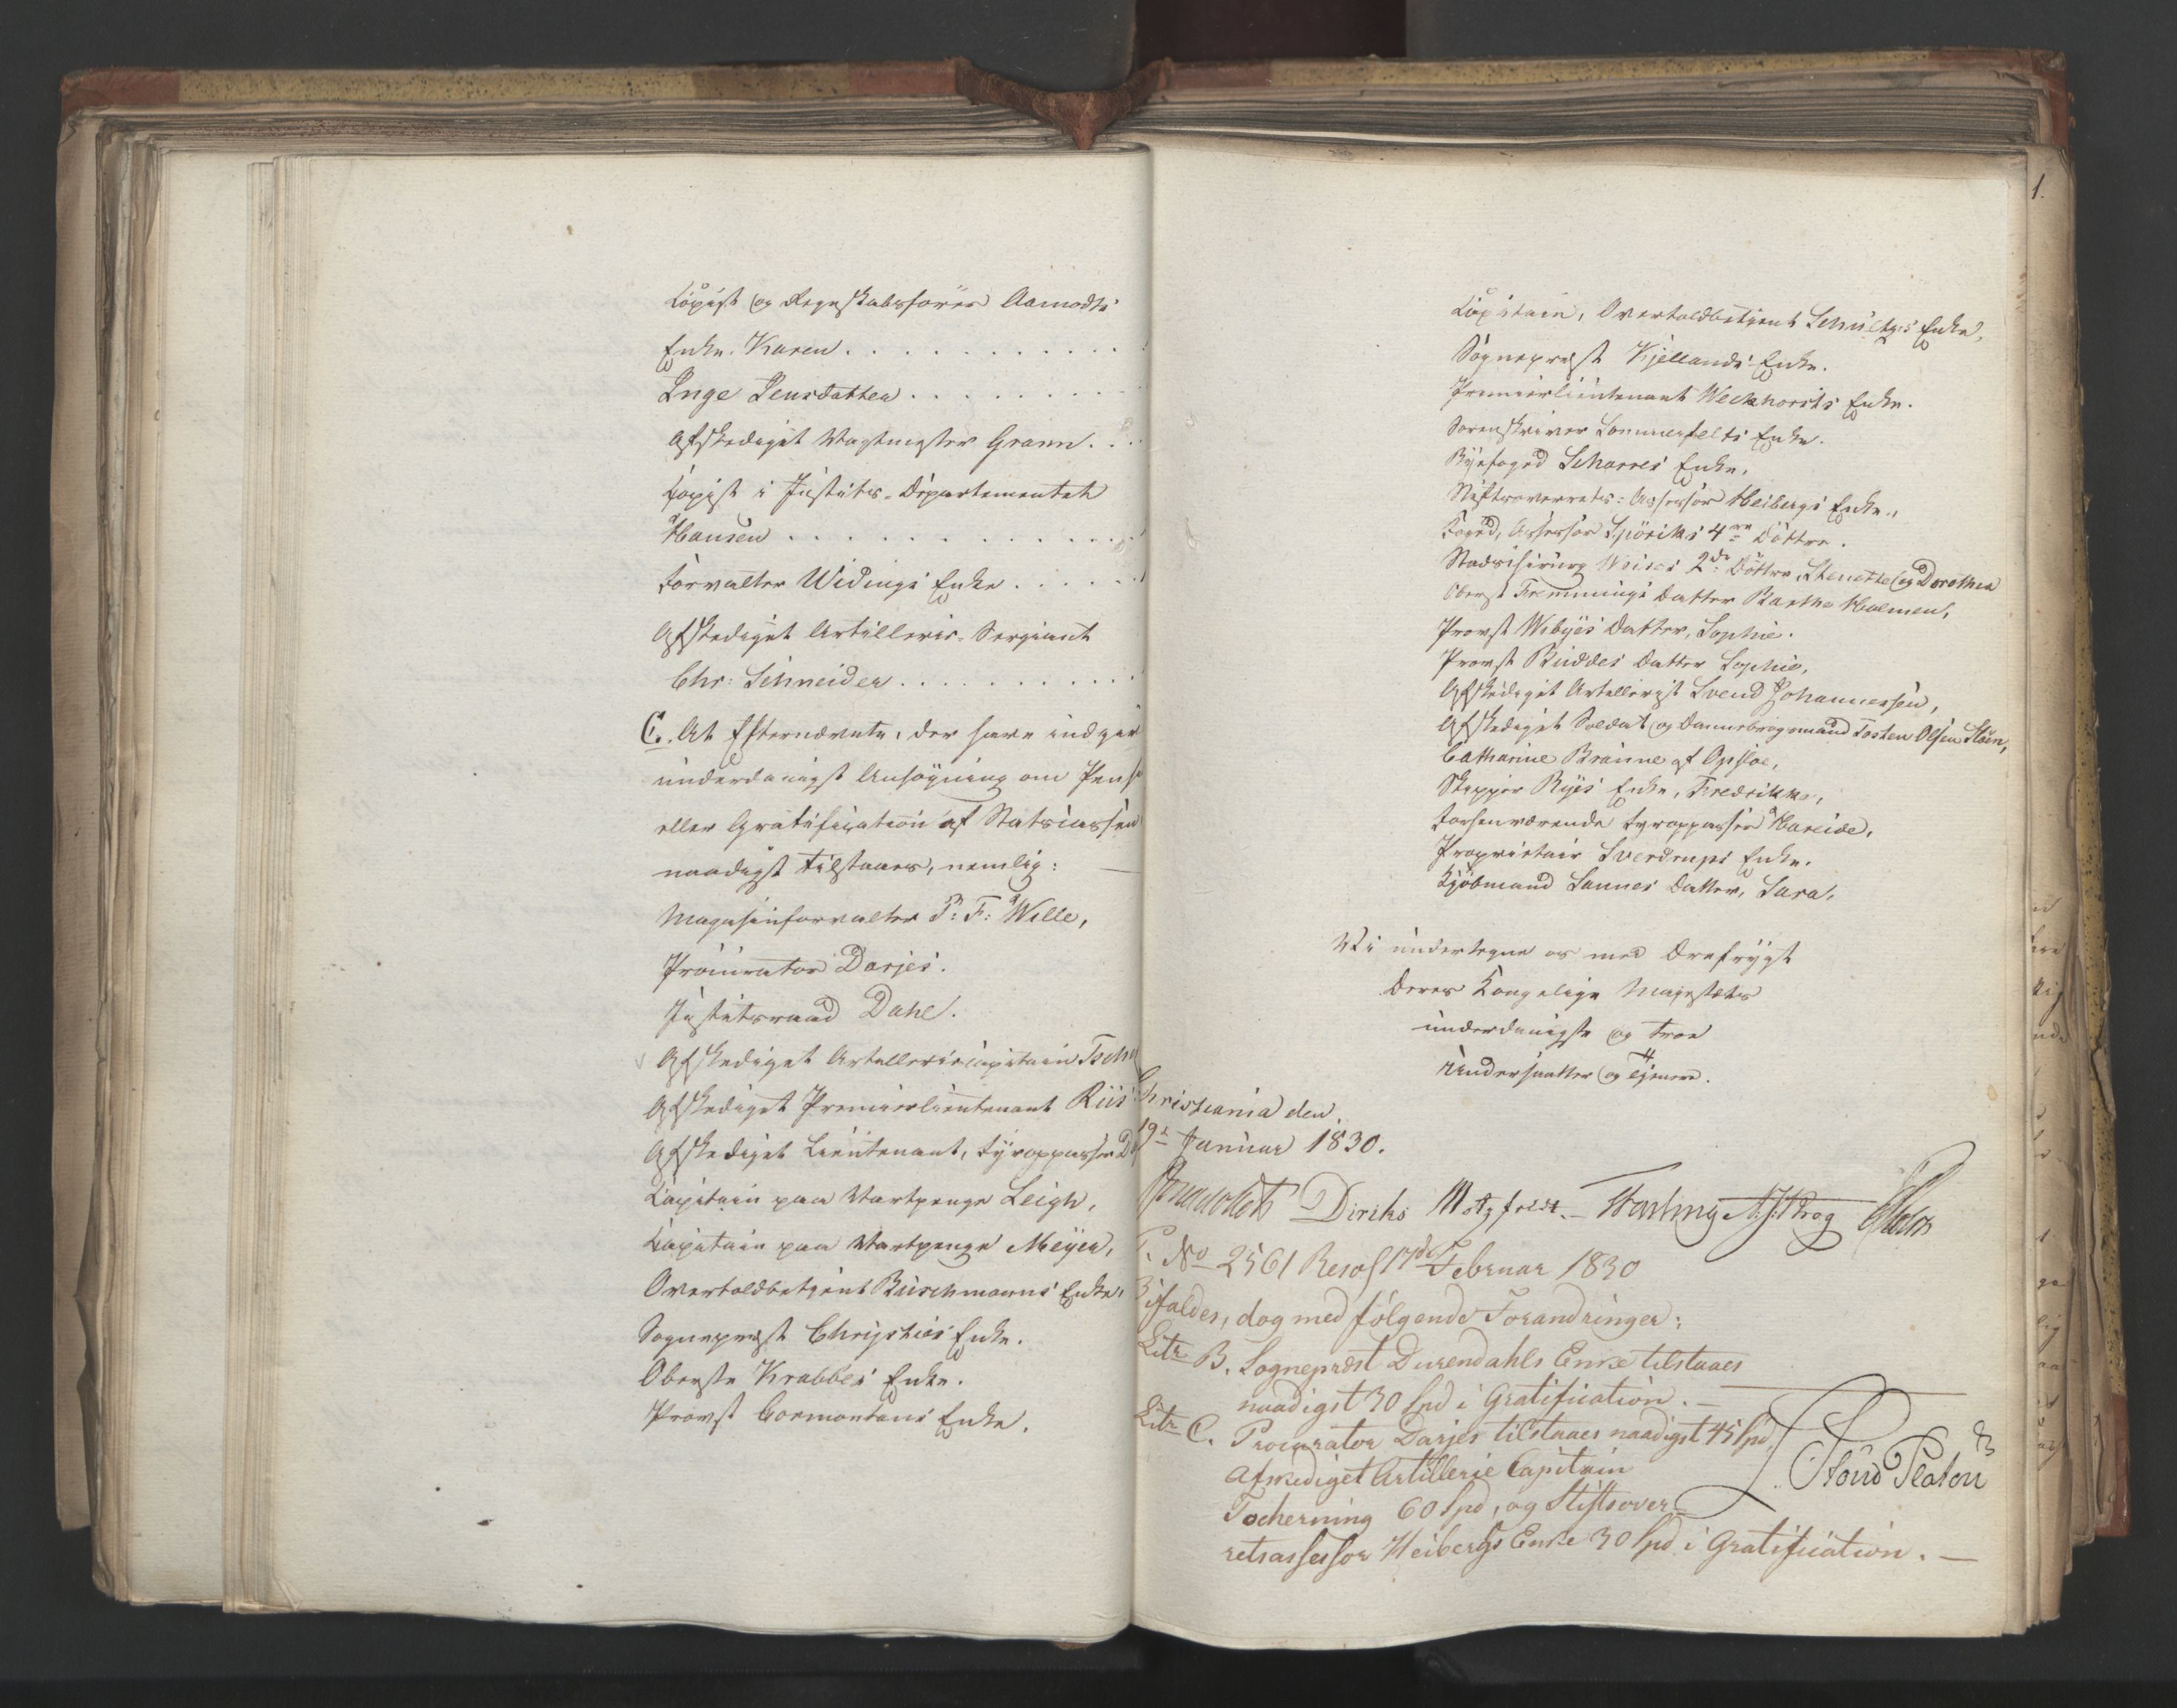 Copist og Regnskabsfører Aamodts
Enke Karen . . . . . . . . . . .
Inge Jensdatter . . . . . . . . .
Afskediget Vagtmester Gramm . . .
Copist i Justits-Departementet
Hansen . . . . . . . . . . . .
Forvalter Widings Enke . . . . .
Afskediget Artillerie-Sergiant
Chr: Schneider . . . . . . . . . .
C. At Efternævnte, der have indgiv
underdanigst Ansøgning om Pens
eller Gratification af Statscassen
naadigst tilstaaes, nemlig: —
Magasinforvalter P: F: Wille,
Procurator Darjes.
Justitsraad Dahl.
Afskediget Artilleriecapitain Tsche
Afskediget Premierlieutenant Riis
Afskediget Lieutenant, Fyroppasser
Capitain paa Vartpenge Leigh,
Capitain paa Vartpenge Meyer,
Overtoldbetjent Buschmanns Enke,
Sognepræst Christies Enke.
Oberste Krabbes Enke.
Provst Cormontans Enke.
1.
Capitain, Overtoldbetjent Schultzes Enke,
Sognepræst Kjellands Enke.
Premierlieutenant Weckhorsts Enke.
Sorenskriver Sommerfelts Enke.
Byefoged Scharres Enke.
Stiftsoverrets-Assessor Heibergs Enke,
Foged, Assessor Spörcks 4re Døttre.
Stadschirurg Weises 2de Døttre, Stenette og Dorothea
Oberst Fremmings Datter Barthe Holmen,
Provst Wibyes Datter, Sophie.
Provst Buddes Datter Sophie,
Afskediget Artillerist Svend Johannessen,
Afskediget Soldat og Dannebrogsmand Tosten Olsen Støen,
Catharine Brunne af Opsloe,
Skipper Ryes Enke, Fredrikke,
Forhenværende Fyroppasser Hareide,
Proprietair Sverdrups Enke.
Kjøbmand Sannes Datter, Sara.
Vi undertegne os med Ærefrygt
Deres Kongelige Majestæts
underdanigste og troe
Undersaatter og Tjenere.
Christiania den
19de Januar 1830.
Diriks Motzfeldt. Fasting N. J. Krog
P. No 2561 Resol 17de Februar 1830
Bifaldes, dog med følgende Forandringer:
Litr B. Sognepræst Durendahls Enke tilstaaes
naadigst 30 Spd i Gratification. —
Litr C. Procurator Darjes tilstaaes naadigst 45 Spd,
Afskediget Artillerie Capitain
Tscherning 60 Spd, og Stiftsover-
retsassessor Heibergs Enke 30 Spd i Gratification. —
Stoud Platou